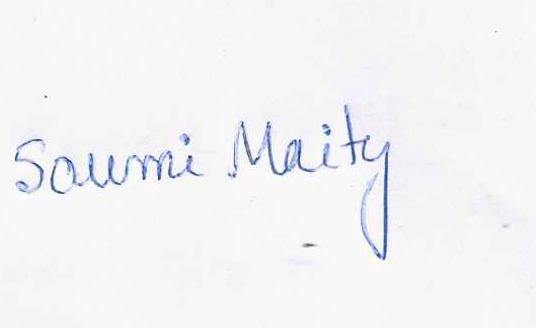 Soumi Maity